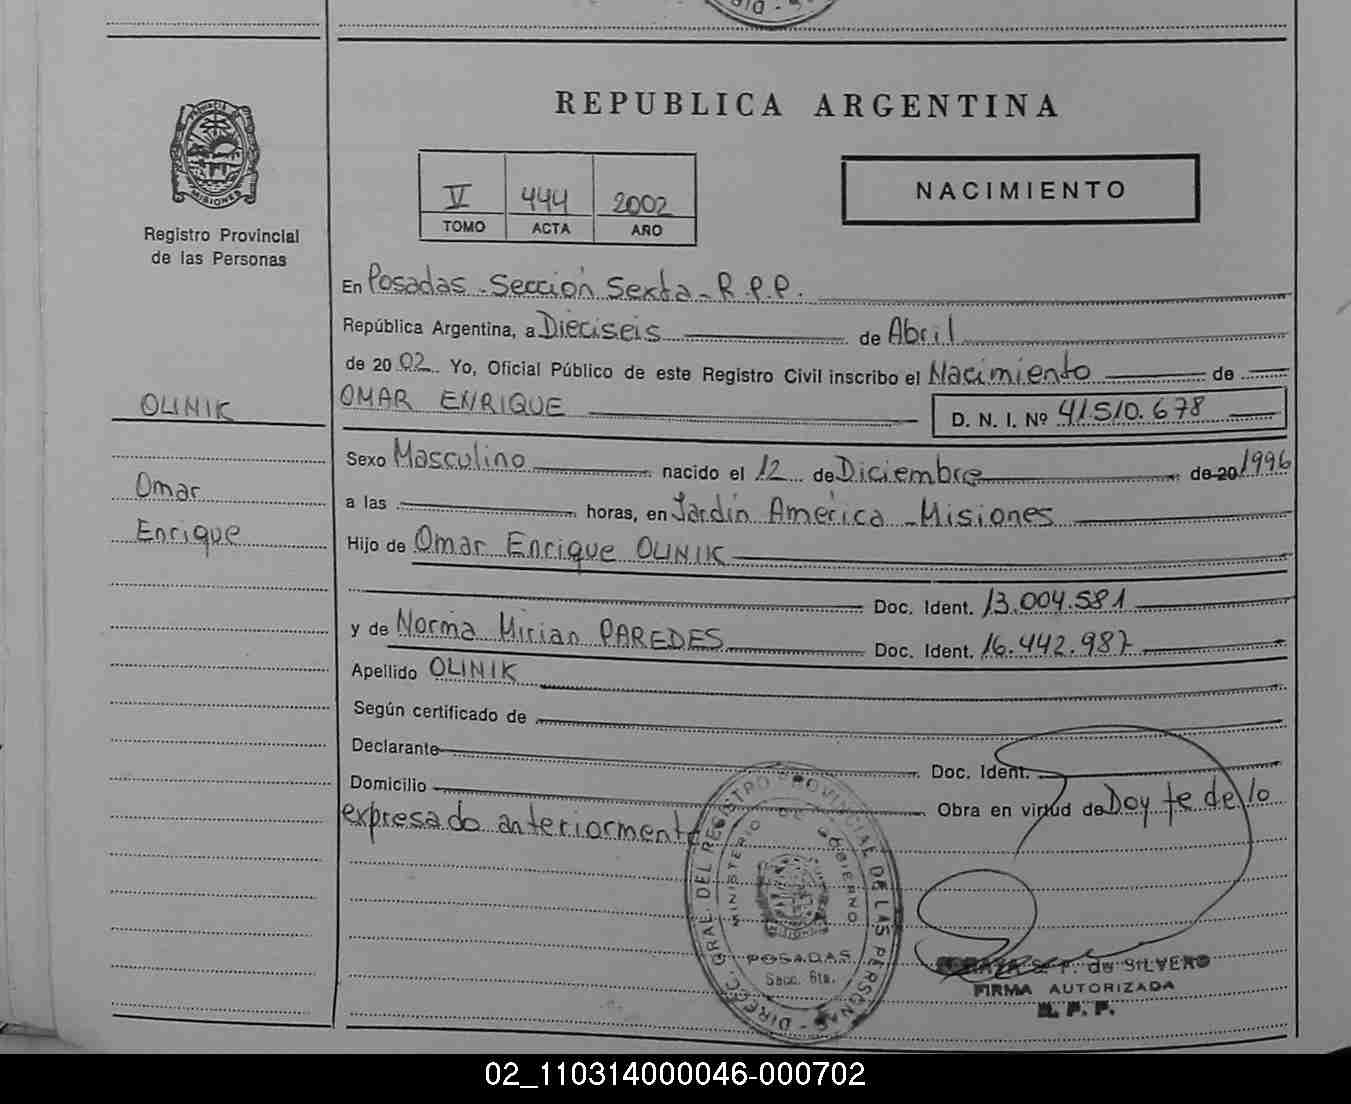 REPUBLICA ARGENTINA
PROVINCIA
MISIONES
Registro Provincial
de las Personas
V 444 2002
TOMO ACTA AÑO
NACIMIENTO
En Posadas - Sección Sexta - R.P.P.
República Argentina, a Dieciseis de Abril
de 2002 Yo, Oficial Público de este Registro Civil inscribo el Nacimiento de
OMAR ENRIQUE D. N. I. Nº 41.510.678
OLINIK
Omar
Enrique
Sexo Masculino nacido el 12 de Diciembre de 20 1996
a las horas, en Jardín América - Misiones
Hijo de Omar Enrique OLINIK
Doc. Ident. 13.004.581
y de Norma Mirian PAREDES Doc. Ident. 16.442.987
Apellido OLINIK
Según certificado de
Declarante Doc. Ident.
Domicilio Obra en virtud de Doy fe de lo
expresado anteriormente
DIRECC. GRAL. DEL REGISTRO PROVINCIAL DE LAS PERSONAS
MINISTERIO DE GOBIERNO
POSADAS
Secc. 6ta.
S. F. de SILVERO
FIRMA AUTORIZADA
R. P. P.
02_110314000046-000702